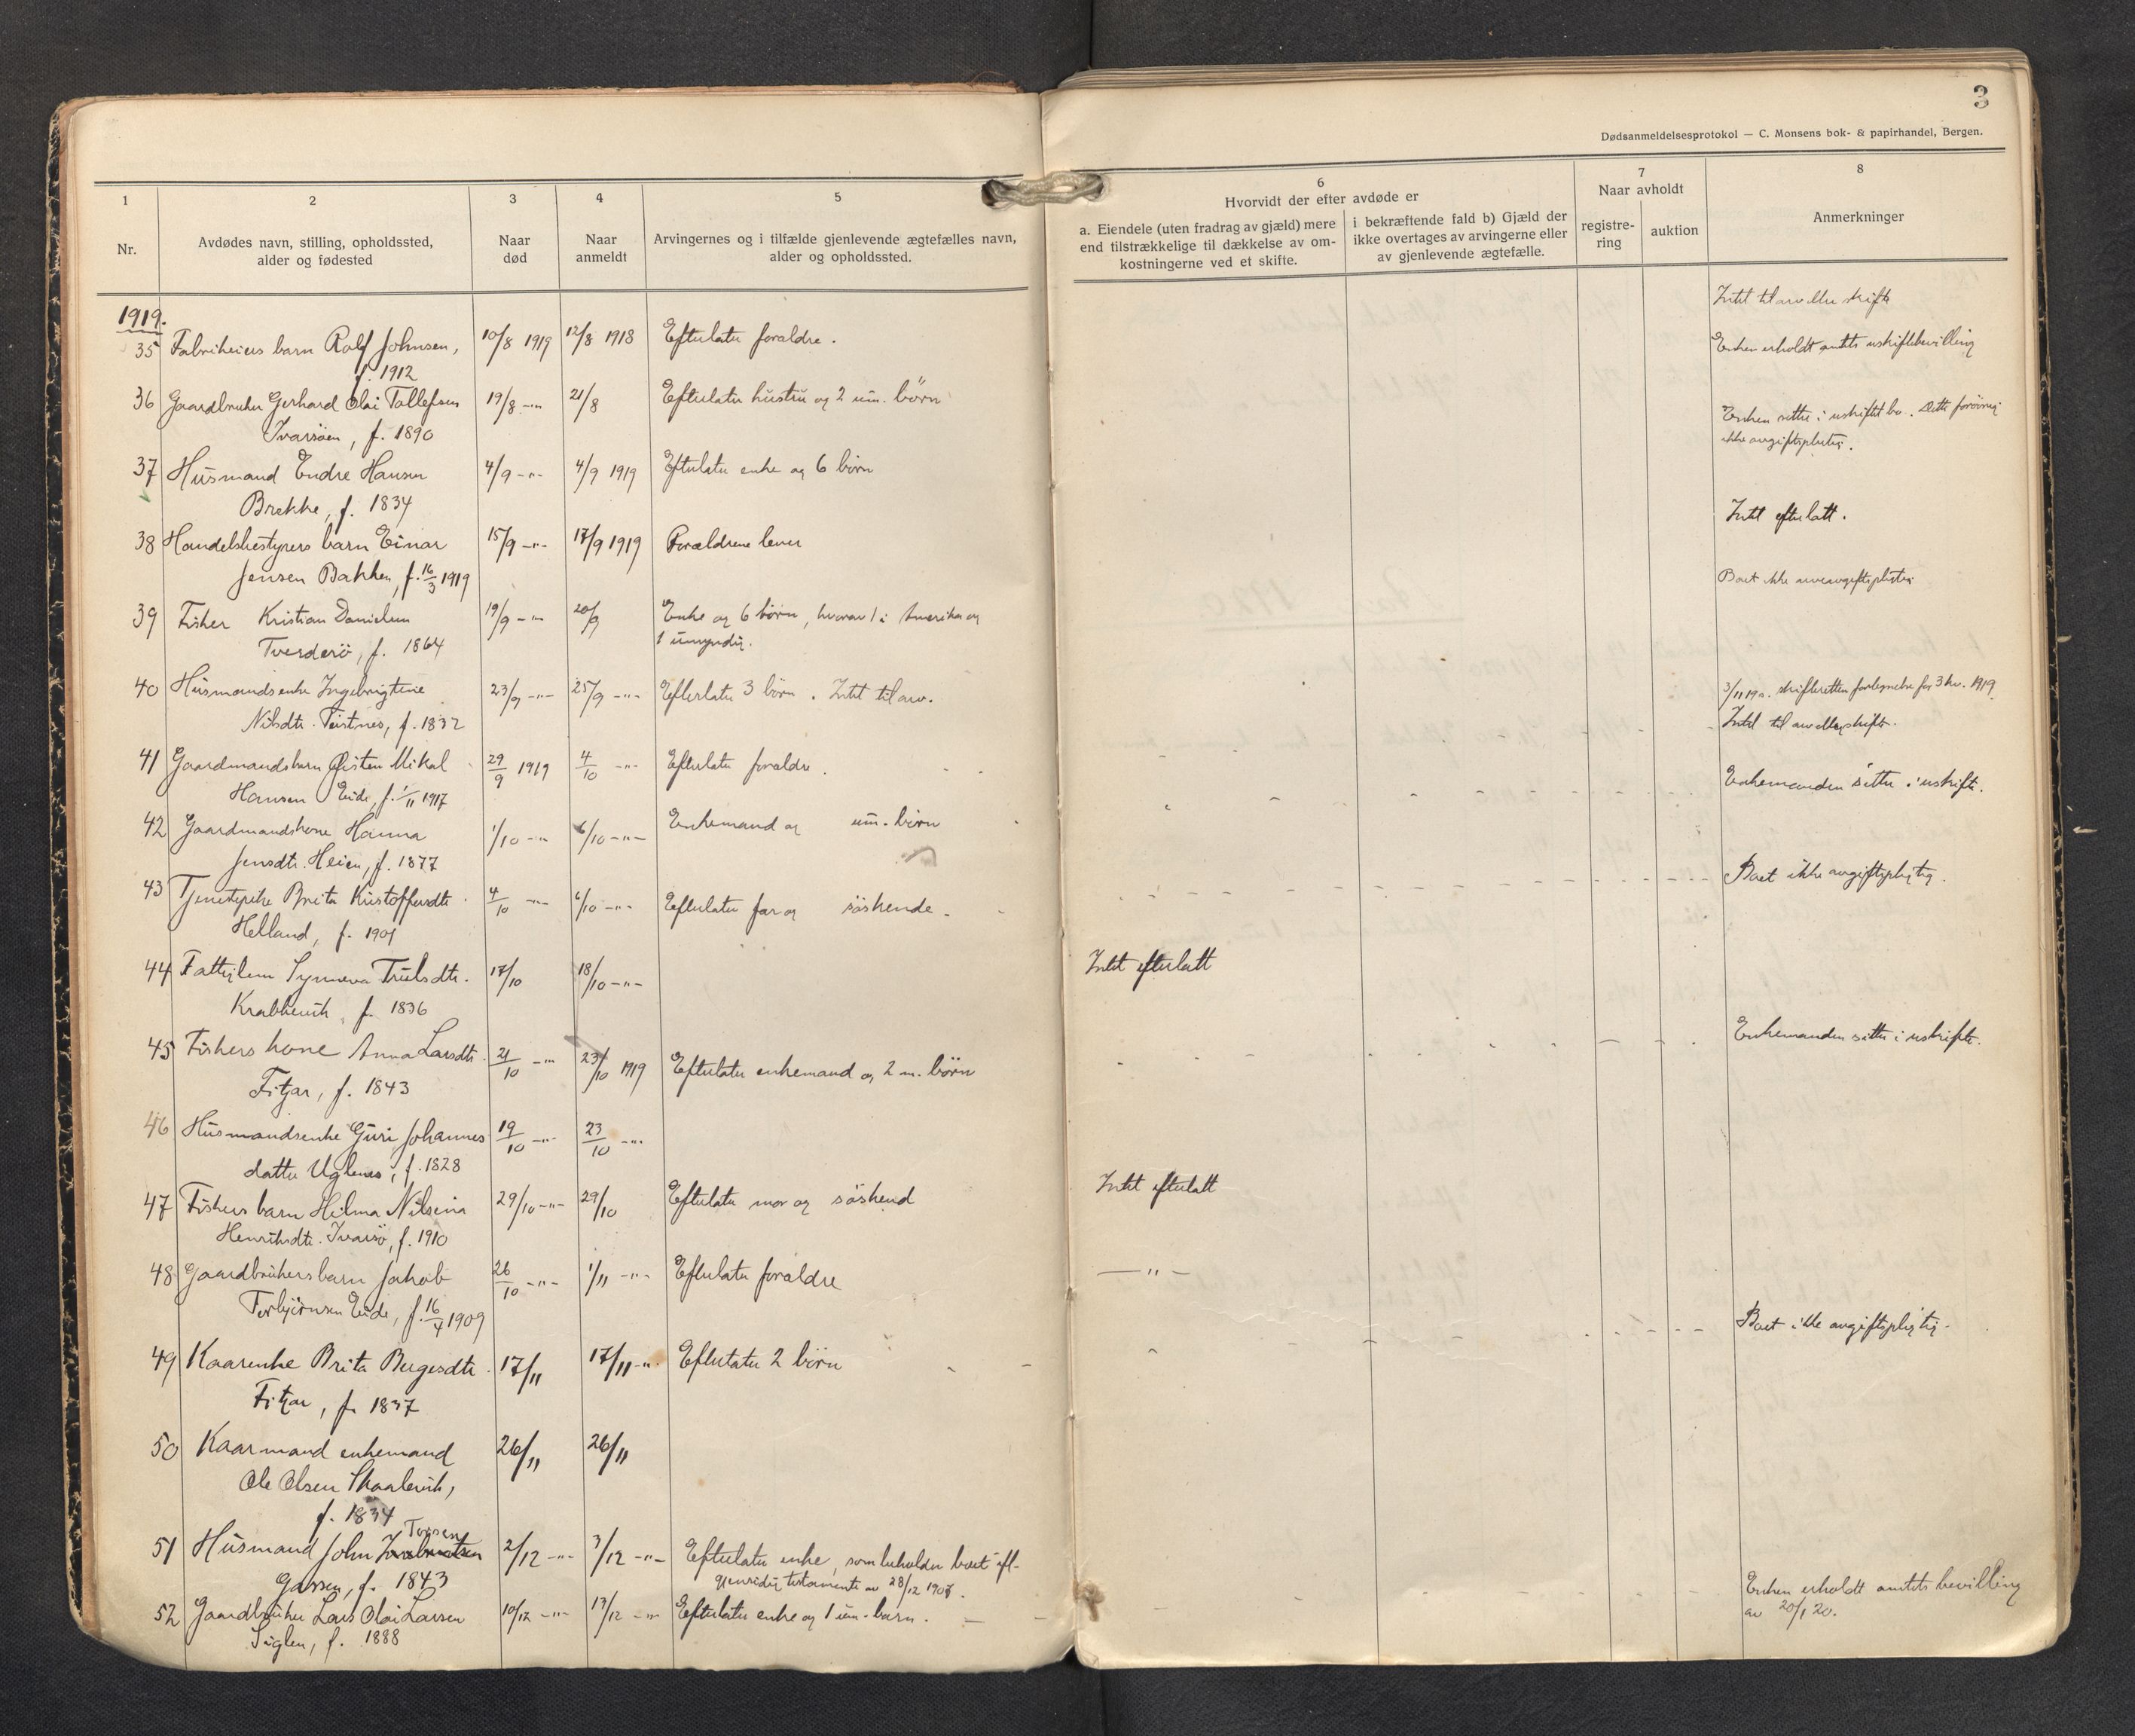 3
Dødsanmeldelsesprotokol — C. Monsens bok- & papirhandel, Bergen.
1
2
3
4
5
6
7
8
Nr.
Avdødes navn, stilling, opholdssted,
alder og fødested
Naar
død
Naar
anmeldt
Arvingernes og i tilfælde gjenlevende ægtefælles navn,
alder og opholdssted.
Hvorvidt der efter avdøde er
a. Eiendele (uten fradrag av gjæld) mere
end tilstrækkelige til dækkelse av om-
kostningerne ved et skifte.
i bekræftende fald b) Gjæld der
ikke overtages av arvingerne eller
av gjenlevende ægtefælle.
Naar avholdt
registre-
ring
auktion
Anmerkninger
1919.
Intet til arv eller skifte
35 barn Rolf Johnsen, 10/8 1919 12/8 1918 Efterlater foraldre.
f. 1912
Enken erholdt amtets uskiftebevilling
36 Gaardbruker Gerhard Olai Tollefsen 19/8 -"- 21/8 Efterlater hustru og 2 um. børn
Ivarsöen, f. 1890
Enken sitter i uskiftet bo. Dette forövrig
ikke avgiftspligtig.
37 Husmand Endre Hansen 4/9 -"- 4/9 1919 Efterlater enke og 6 börn
Brekke, f. 1834
Intet efterlatt.
38 Handelsbestyrers barn Einar 15/9 -"- 17/9 1919 Forældrene lever
Jensen Bakken, f. 16/3 1919
Boet ikke arveavgiftspligtig
39 Fisker Kristian Danielsen 19/9 -"- 20/9 Enke og 6 börn, hvorav 1 i Amerika og
Tverderö, f. 1864 1 umyndig.
40 Husmandsenke Ingebrigtine 23/9 -"- 25/9 -"- Efterlater 3 börn. Intet til arv.
3/11 19 skifteretten fortegnelse for 3 kv. 1919
Nilsdtr. Teistnes, f. 1832
Intet til arv eller skifte.
41 Gaardmandsbarn Øisten Mikal 29/9 1919 4/10 -"- Efterlater foraldre.
Hansen Eide, f. 1/11 1917
Enkemanden sitter i uskifte.
42 Gaardmandskone Hanna 1/10 -"- 6/10 -"- Enkemand og um. börn
Jensdtr. Heien, f. 1877
Boet ikke avgiftspligtig.
43 Tjenestepike Brita Kristoffersdtr. 4/10 -"- 6/10 -"- Efterlater far og söskende.
Helland, f. 1901
44 Fattiglem Synneva Trulsdtr. 17/10 18/10 -"- Intet efterlatt
f. 1836
45 Fiskers kone Anna Larsdtr. 21/10 -"- 23/10 1919 Efterlater enkemand og 2 m. börn
Enkemanden sitter i uskifte.
Fitjar, f. 1843
46 Husmandsenke Guri Johannes 19/10 -"- 23/10 -"-
datter Uglenes, f. 1828
47 Fiskers barn Hilma Nilsina 29/10 -"- 29/10 Efterlater mor og söskend Intet efterlatt
Henriksdtr. Ivarsö, f. 1910
48 Gaardbrukers barn Jakob 26/10 -"- 1/11 -"- Efterlater foraldre — " —
Torbjörnsen Eide, f. 16/4 1909
Boet ikke avgiftspligtig.
49 Kaarenke Brita Bergesdtr. 17/11 17/11 -"- Efterlater 2 börn
Fitjar, f. 1837
50 Kaarmand enkemand 26/11 26/11
Ole Olsen Skaalevik,
f. 1834
Torsen
51 Husmand John 2/12 -"- 3/12 -"- Efterlater enke, som beholder boet ifl.
f. 1843 gjensidig testamente av 28/12
52 Gaardbruker Lars Olai Larsen 10/12 -"- 13/12 -"- Efterlater enke og 1 um. barn.
Enken erholdt amtets bevilling
av 20/1 20.
f. 1888